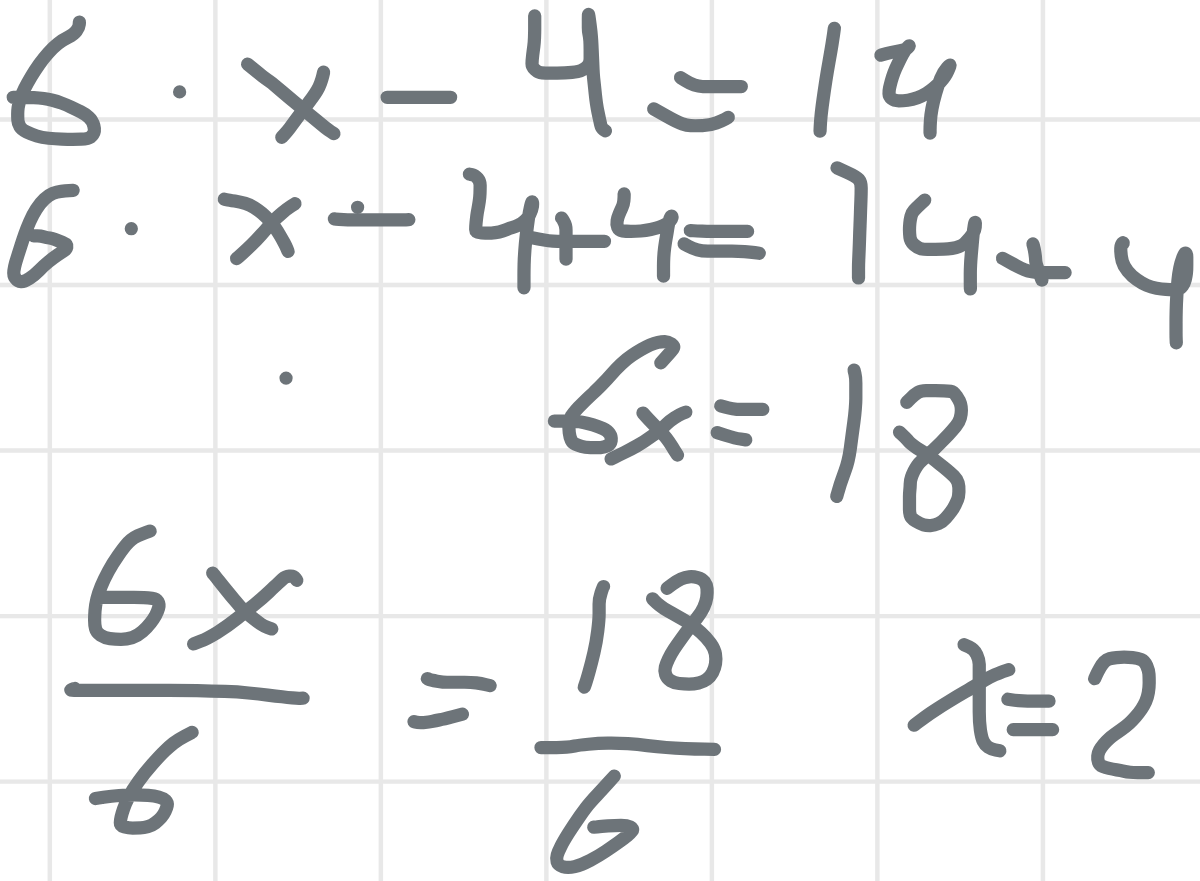 6 · x - 4 = 14
6 · x - 4 + 4 = 14 + 4
6x = 18
6x/6 = 18/6 x = 2